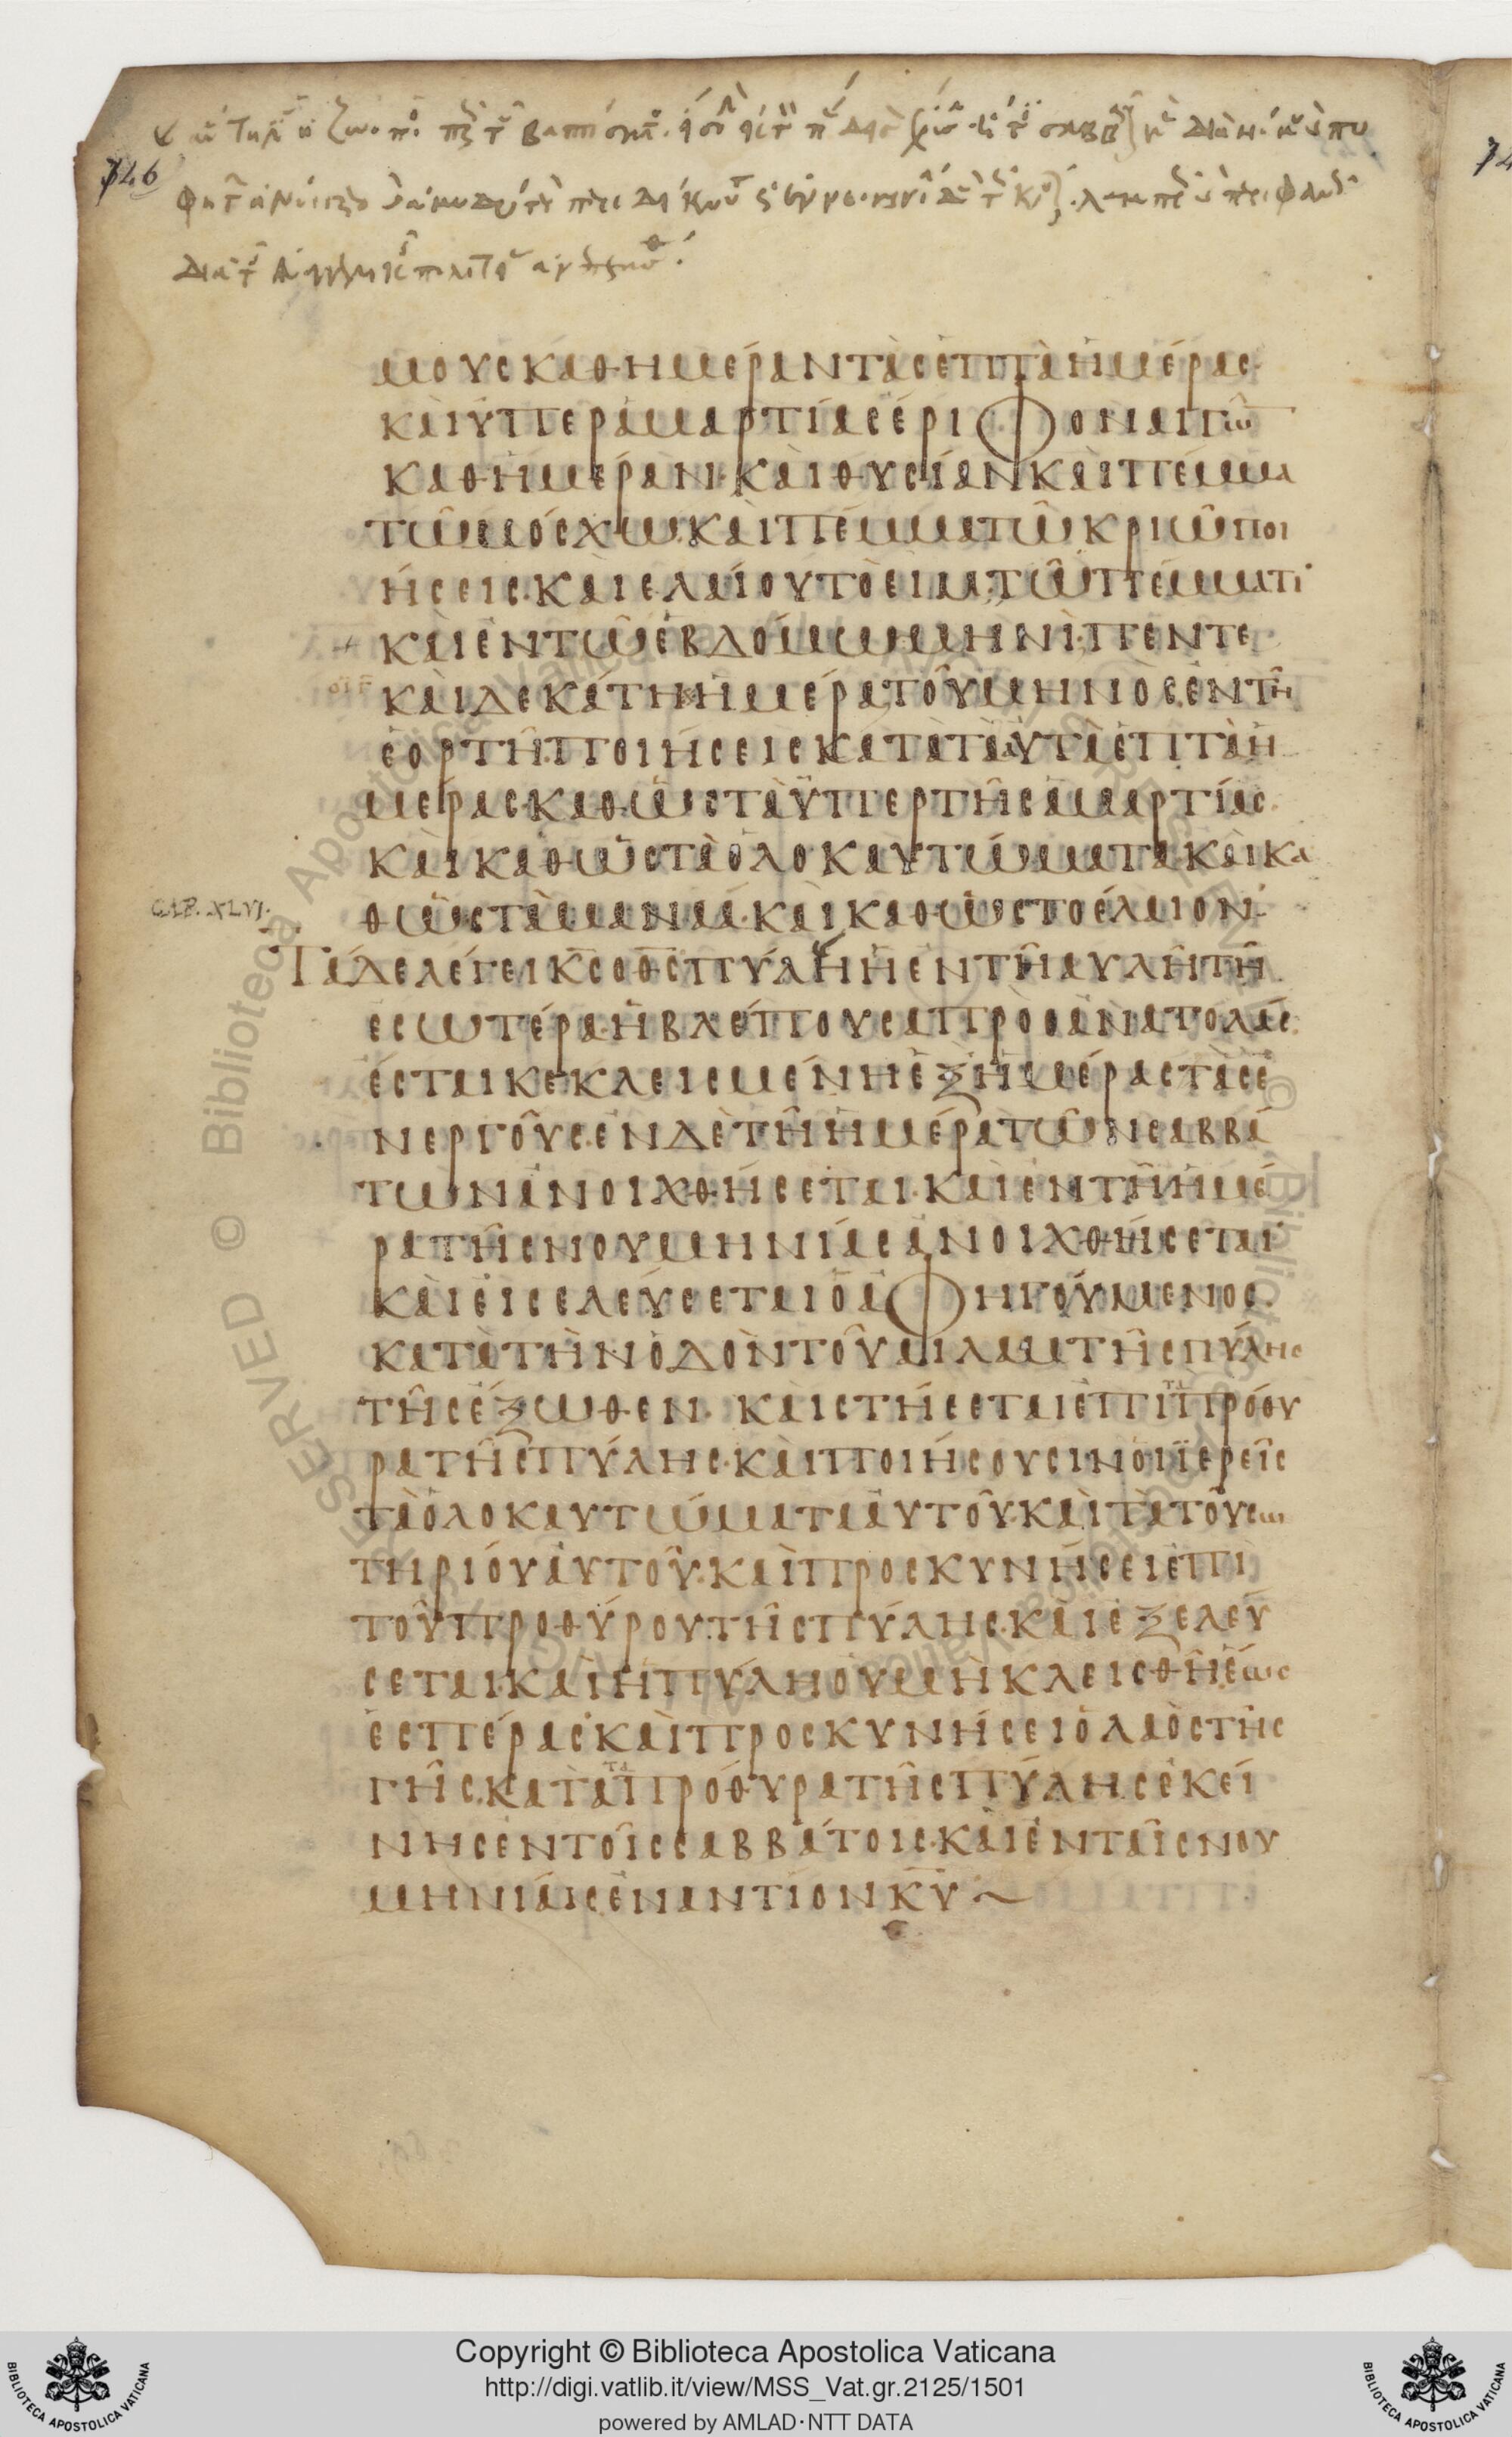 746
ΜΟΥΣΚΑΘΗΜΕΡΑΝΤΑΣΕΠΤΑΗΜΕΡΑΣ·
ΚΑΙΥΠΕΡΑΜΑΡΤΙΑΣΕΡΙΦΟΝΑΙΓῶ
ΚΑΘΗΜΕΡΑΝ·ΚΑΙΘΥΣΙΑΝΚΑΙΠΕΜΜΑ
ΤΩΜΟΣΧΩ·ΚΑΙΠΕΜΜΑΤΩΚΡΙΩΠΟΙ
ΗΣΕΙΣ·ΚΑΙΕΛΑΙΟΥΤΟΕΙΝ·ΤΩΠΕΜΜΑΤΙ·
ΚΑΙΕΝΤΩΕΒΔΟΜΩΜΗΝΙ·ΠΕΝΤΕ
ΚΑΙΔΕΚΑΤΗΗΜΕΡΑΤΟΥΜΗΝΟΣΕΝΤΗ
ΕΟΡΤΗ·ΠΟΙΗΣΕΙΣΚΑΤΑΤΑΥΤΑΕΠΤΑΗ
ΜΕΡΑΣ·ΚΑΘΩΣΤΑΥΠΕΡΤΗΣΑΜΑΡΤΙΑΣ·
ΚΑΙΚΑΘΩΣΤΑΟΛΟΚΑΥΤΩΜΑΤΑ·ΚΑΙΚΑ
CAP. XLVI.
ΘΩΣΤΑΜΑΝΑΑ·ΚΑΙΚΑΘΩΣΤΟΕΛΑΙΟΝ·
ΤΑΔΕΛΕΓΕΙΚΣΟΘΣΠΥΛΗΗΕΝΤΗΑΥΛΗΤΗ
ΕΣΩΤΕΡΑ·ΗΒΛΕΠΟΥΣΑΠΡΟΣΑΝΑΤΟΛΑΣ·
ΕΣΤΑΙΚΕΚΛΕΙΣΜΕΝΗΕΞΗΜΕΡΑΣΤΑΣΕ
ΝΕΡΓΟΥΣ·ΕΝΔΕΤΗΗΜΕΡΑΤΩΝΣΑΒΒΑ
ΤΩΝΑΝΟΙΧΘΗΣΕΤΑΙ·ΚΑΙΕΝΤΗΗΜΕ
ΡΑΤΗΣΝΟΥΜΗΝΙΑΣΑΝΟΙΧΘΗΣΕΤΑΙ·
ΚΑΙΕΙΣΕΛΕΥΣΕΤΑΙΟΑΦΗΓΟΥΜΕΝΟΣ·
ΚΑΤΑΤΗΝΟΔΟΝΤΟΥΑΙΛΑΜΤΗΣΠΥΛΗΣ
ΤΗΣΕΞΩΘΕΝ· ΚΑΙΣΤΗΣΕΤΑΙΕΠΙΤΑΠΡΟΘΥ
ΡΑΤΗΣΠΥΛΗΣ·ΚΑΙΠΟΙΗΣΟΥΣΙΝΟΙΪΕΡΕΙΣ
ΤΑΟΛΟΚΑΥΤΩΜΑΤΑΑΥΤΟΥ·ΚΑΙΤΑΤΟΥΣΩ
ΤΗΡΙΟΥΑΥΤΟΥ·ΚΑΙΠΡΟΣΚΥΝΗΣΕΙΕΠΙ
ΤΟΥΠΡΟΘΥΡΟΥΤΗΣΠΥΛΗΣ·ΚΑΙΕΞΕΛΕΥ
ΣΕΤΑΙ·ΚΑΙΗΠΥΛΗΟΥΜΗΚΛΕΙΣΘΗΕΩΣ
ΕΣΠΕΡΑΣ·ΚΑΙΠΡΟΣΚΥΝΗΣΕΙΟΛΑΟΣΤΗΣ
ΓΗΣ·ΚΑΤΑΤΑΠΡΟΘΥΡΑΤΗΣΠΥΛΗΣΕΚΕΙ
ΝΗΣΕΝΤΟΙΣΣΑΒΒΑΤΟΙΣ·ΚΑΙΕΝΤΑΙΣΝΟΥ
ΜΗΝΙΑΙΣΕΝΑΝΤΙΟΝΚΥ ~
Copyright © Biblioteca Apostolica Vaticana
http://digi.vatlib.it/view/MSS_Vat.gr.2125/1501
powered by AMLAD·NTT DATA